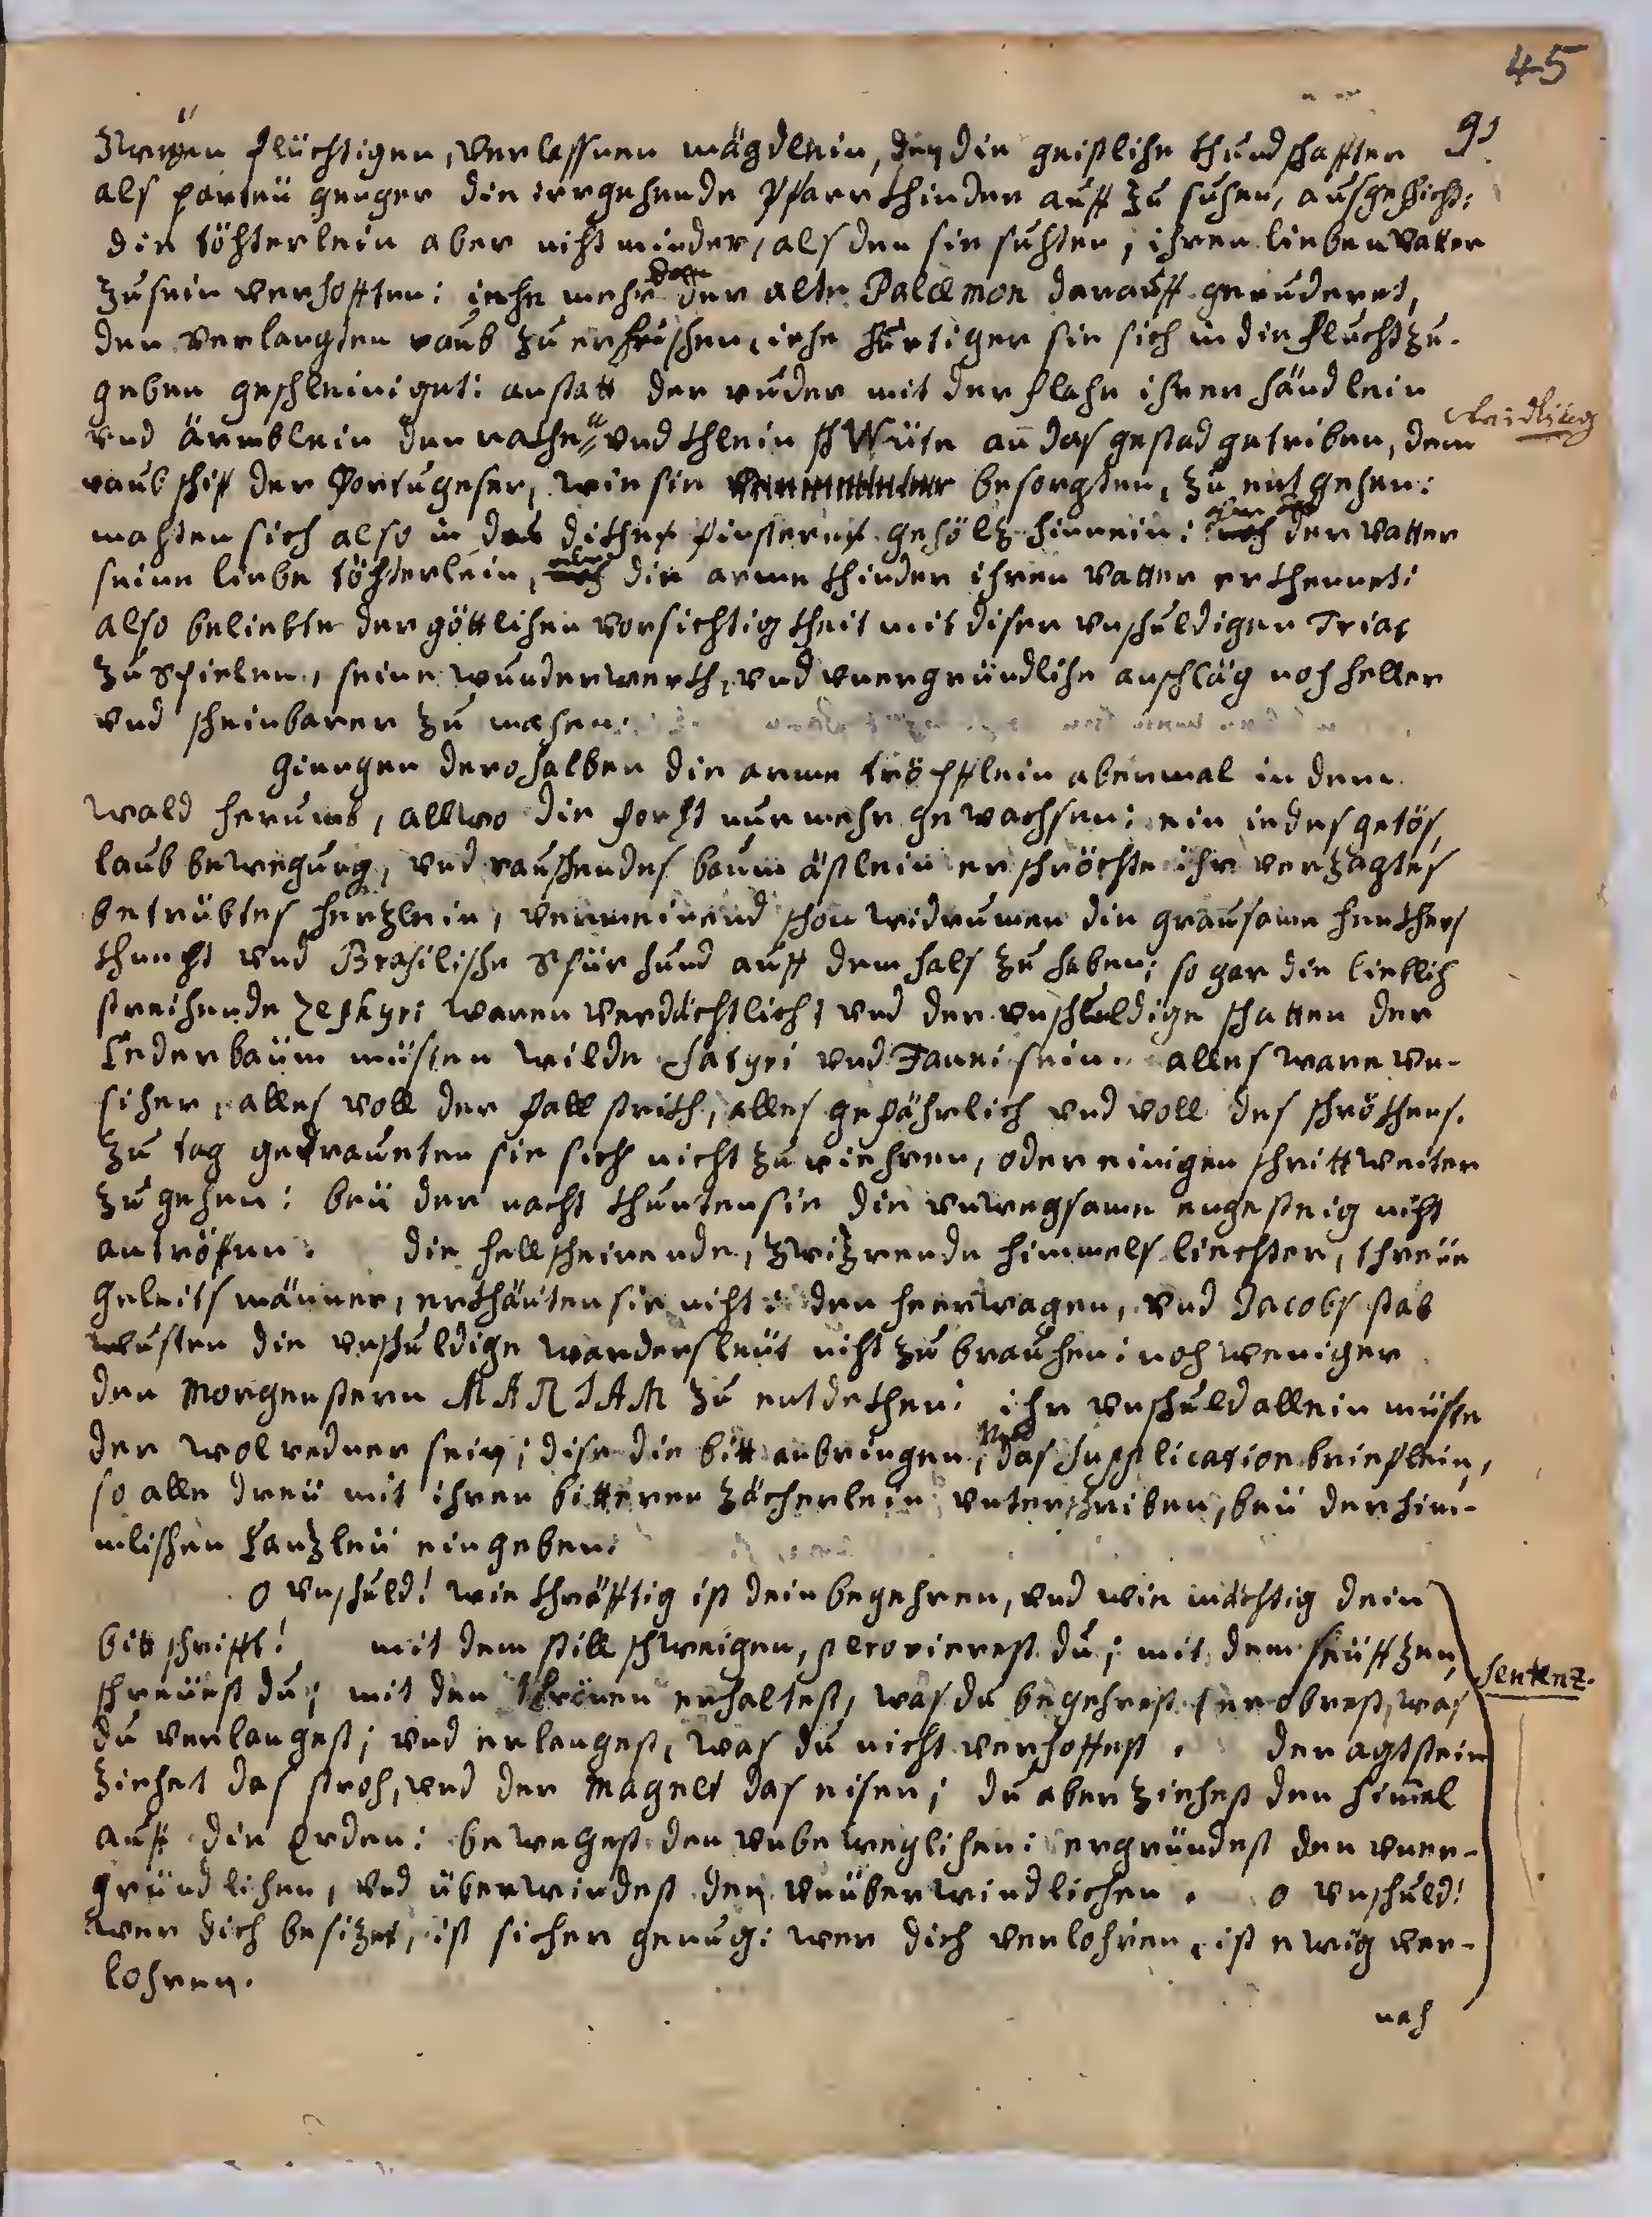 45
91
zwayen flüchtigen, verlassnen mägdlein, den die geistliche khundschaffter
als parteü genger die irrgehende Pfarrkhinder auff zu suchen, ausgeschicht:
die töchterlein aber nicht minder, als den sie suchten, ihren lieben Vatter
zu sein verhofften: iehe mehr der alte Palæmon darauff geruderet,
den verlangten raub zu erhaschen, iehe hurtiger sie sich in die flucht zu-
geben geschleiniget: anstatt der ruder mit der flache ihrer händlein
vnd ärmblein den nachen vnd khlein an das gestad getriben, dem
Waidling
raubschif der Portugeser, wie sie besorgten, zu entgehen:
machten sich also in das dickhe finstere gehöltz hinnein: der Vatter
seine liebe töchterlein, die arme khinder ihren Vatter erkhennet:
also beliebte der göttlichen vorsichtigkheit mit diser vnschuldigen Trias
zu Spielen, seine wunderwerch, vnd vnergründliche anschläg noch heller
vnd scheinbarer zu machen:
Giengen derohalben die arme tröpfflein abermal in dem
wald herumb, allwo die forcht nun mehr gewachsen: ein iedes getös,
laub bewegung, vnd rauschendes baum ästlein erschröckhte ihr verzagtes
betrübtes hertzlein, vermeinend schon widrumen die grausame henckhers
khnecht vnd Brasilische Spürhund auff dem hals zu haben: so gar die lieblich
streichende Zephyri waren verdächtlich, vnd der vnschuldige schatten der
Cederbäum müsten wilde Satyri vnd Fauni sein. alles ware vn-
sicher, alles voll der fallstrickh, alles gefährlich vnd voll des schröckhens.
zu tag getrauten sie sich nicht zu riehren, oder einigen schritt weiter
zu gehen: beü der nacht khunten sie die vnwegsame enge steig nicht
antröfen: die hellscheinende, zwizrende himmels liechter, threüe
geleitsmänner, erkhänten sie nicht: den heerwagen, vnd Jacobs stab
wusten die vnschuldige wandersleüt nicht zu brauchen: noch weniger
den Morgenstern MARIAM zu entdeckhen: ihr vnschuld allein müste
der wolredner sein; dise die bitt anbringen, Vnd das Supplication brieflein,
so alle dreü mit ihren bitteren zächerlein vnterschriben, beü der him-
mlischen Cantzleü eingeben:
O vnschuld! wie khräfftig ist dein begehren, vnd wie mächtig dein
bittschrifft! mit dem stillschweigen, perorierest du; mit dem seüfftzen,
schreüest du; mit den thränen erhaltest, was du begehrest: eroberest, was
Sentenz.
du verlangest; vnd erlangest, was du nicht verhoffest. der agtstein
ziehet das stroh, vnd der Magnet das eisen; du aber ziehest den himel
auff die Erden: bewegest den vnbeweglichen: ergründest den vner-
gründlichen, vnd überwindest den vnüberwindlichen. O vnschuld!
wer dich besizet, ist sicher genug: wer dich verlohren, ist ewig ver-
lohren.
nach